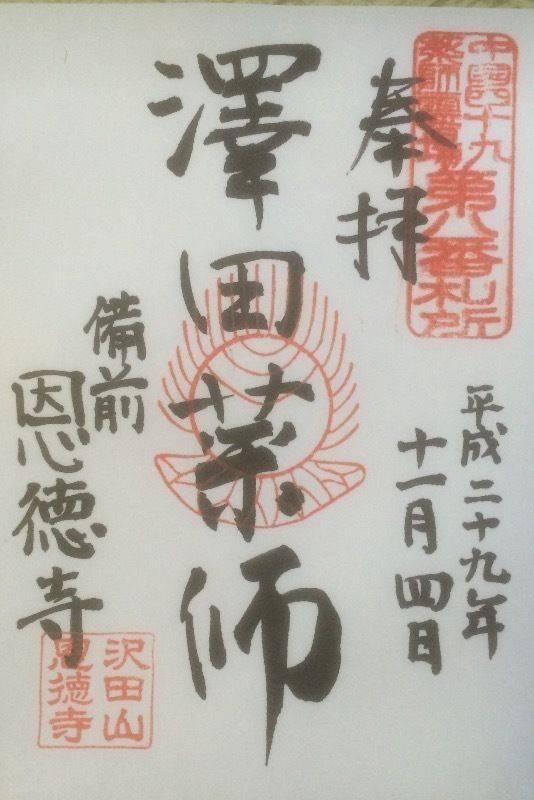 奉拝
中国四十九
薬師霊場
第八番札所
平成二十九年
十一月四日
澤田薬師
備前
恩徳寺
沢田山
恩徳寺